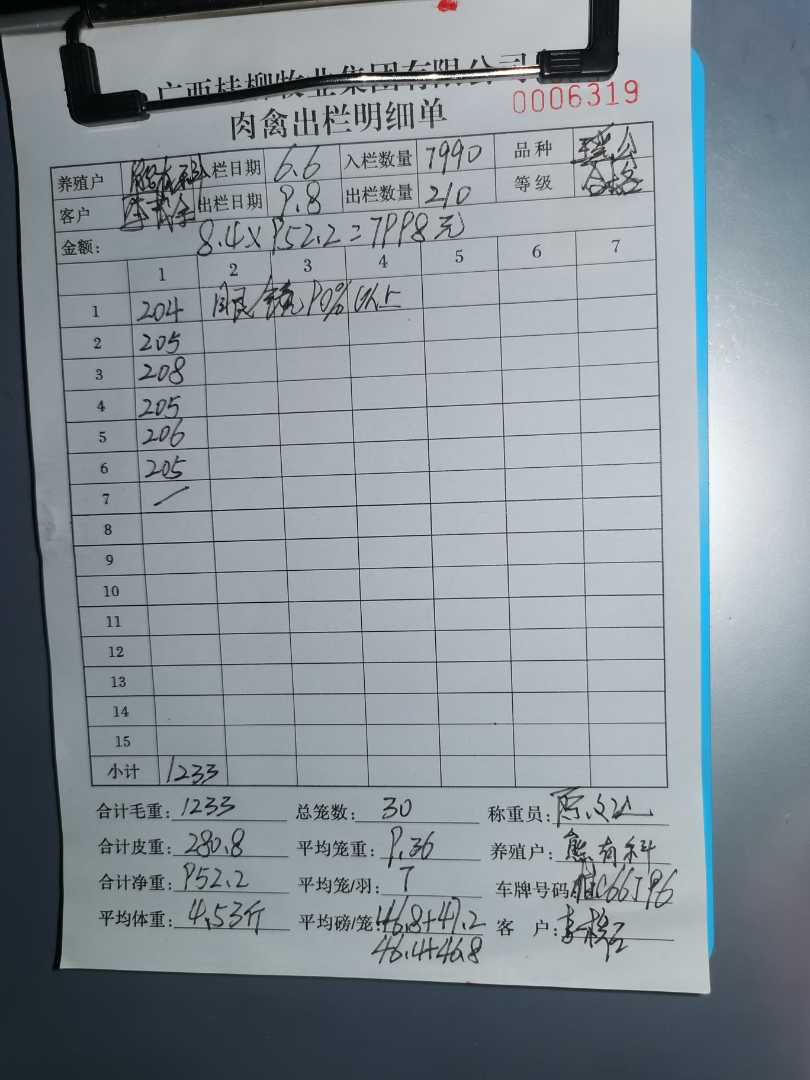 广西桂柳牧业集团有限公司
肉禽出栏明细单 0006319
养殖户 熊有科 入栏日期 6.6 入栏数量 7990 品种
客户 出栏日期 9.8 出栏数量 210 等级 合格
金额: 8.4×952.2=7998元
1 2 3 4 5 6 7
1 204 90%以上
2 205
3 208
4 205
5 206
6 205
7 /
8
9
10
11
12
13
14
15
小计 1233
合计毛重: 1233 总笼数: 30 称重员:
合计皮重: 280.8 平均笼重: 9.36 养殖户: 熊有科
合计净重: 952.2 平均笼/羽: 7 车牌号码: C66J96
平均体重: 4.53斤 平均磅/笼: 46.8+47.2 客 户:
46.4+46.8